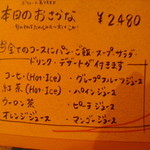 本日のおさかな ¥2480
全てのコースにパン・ご飯・スープ・サラダ
ドリンク・デザートが付きます
コーヒー(Hot・Ice) ・グレープフルーツジュース
紅茶(Hot・Ice) ・パインジュース
ウーロン茶 ・ピーチジュース
オレンジジュース ・マンゴージュース